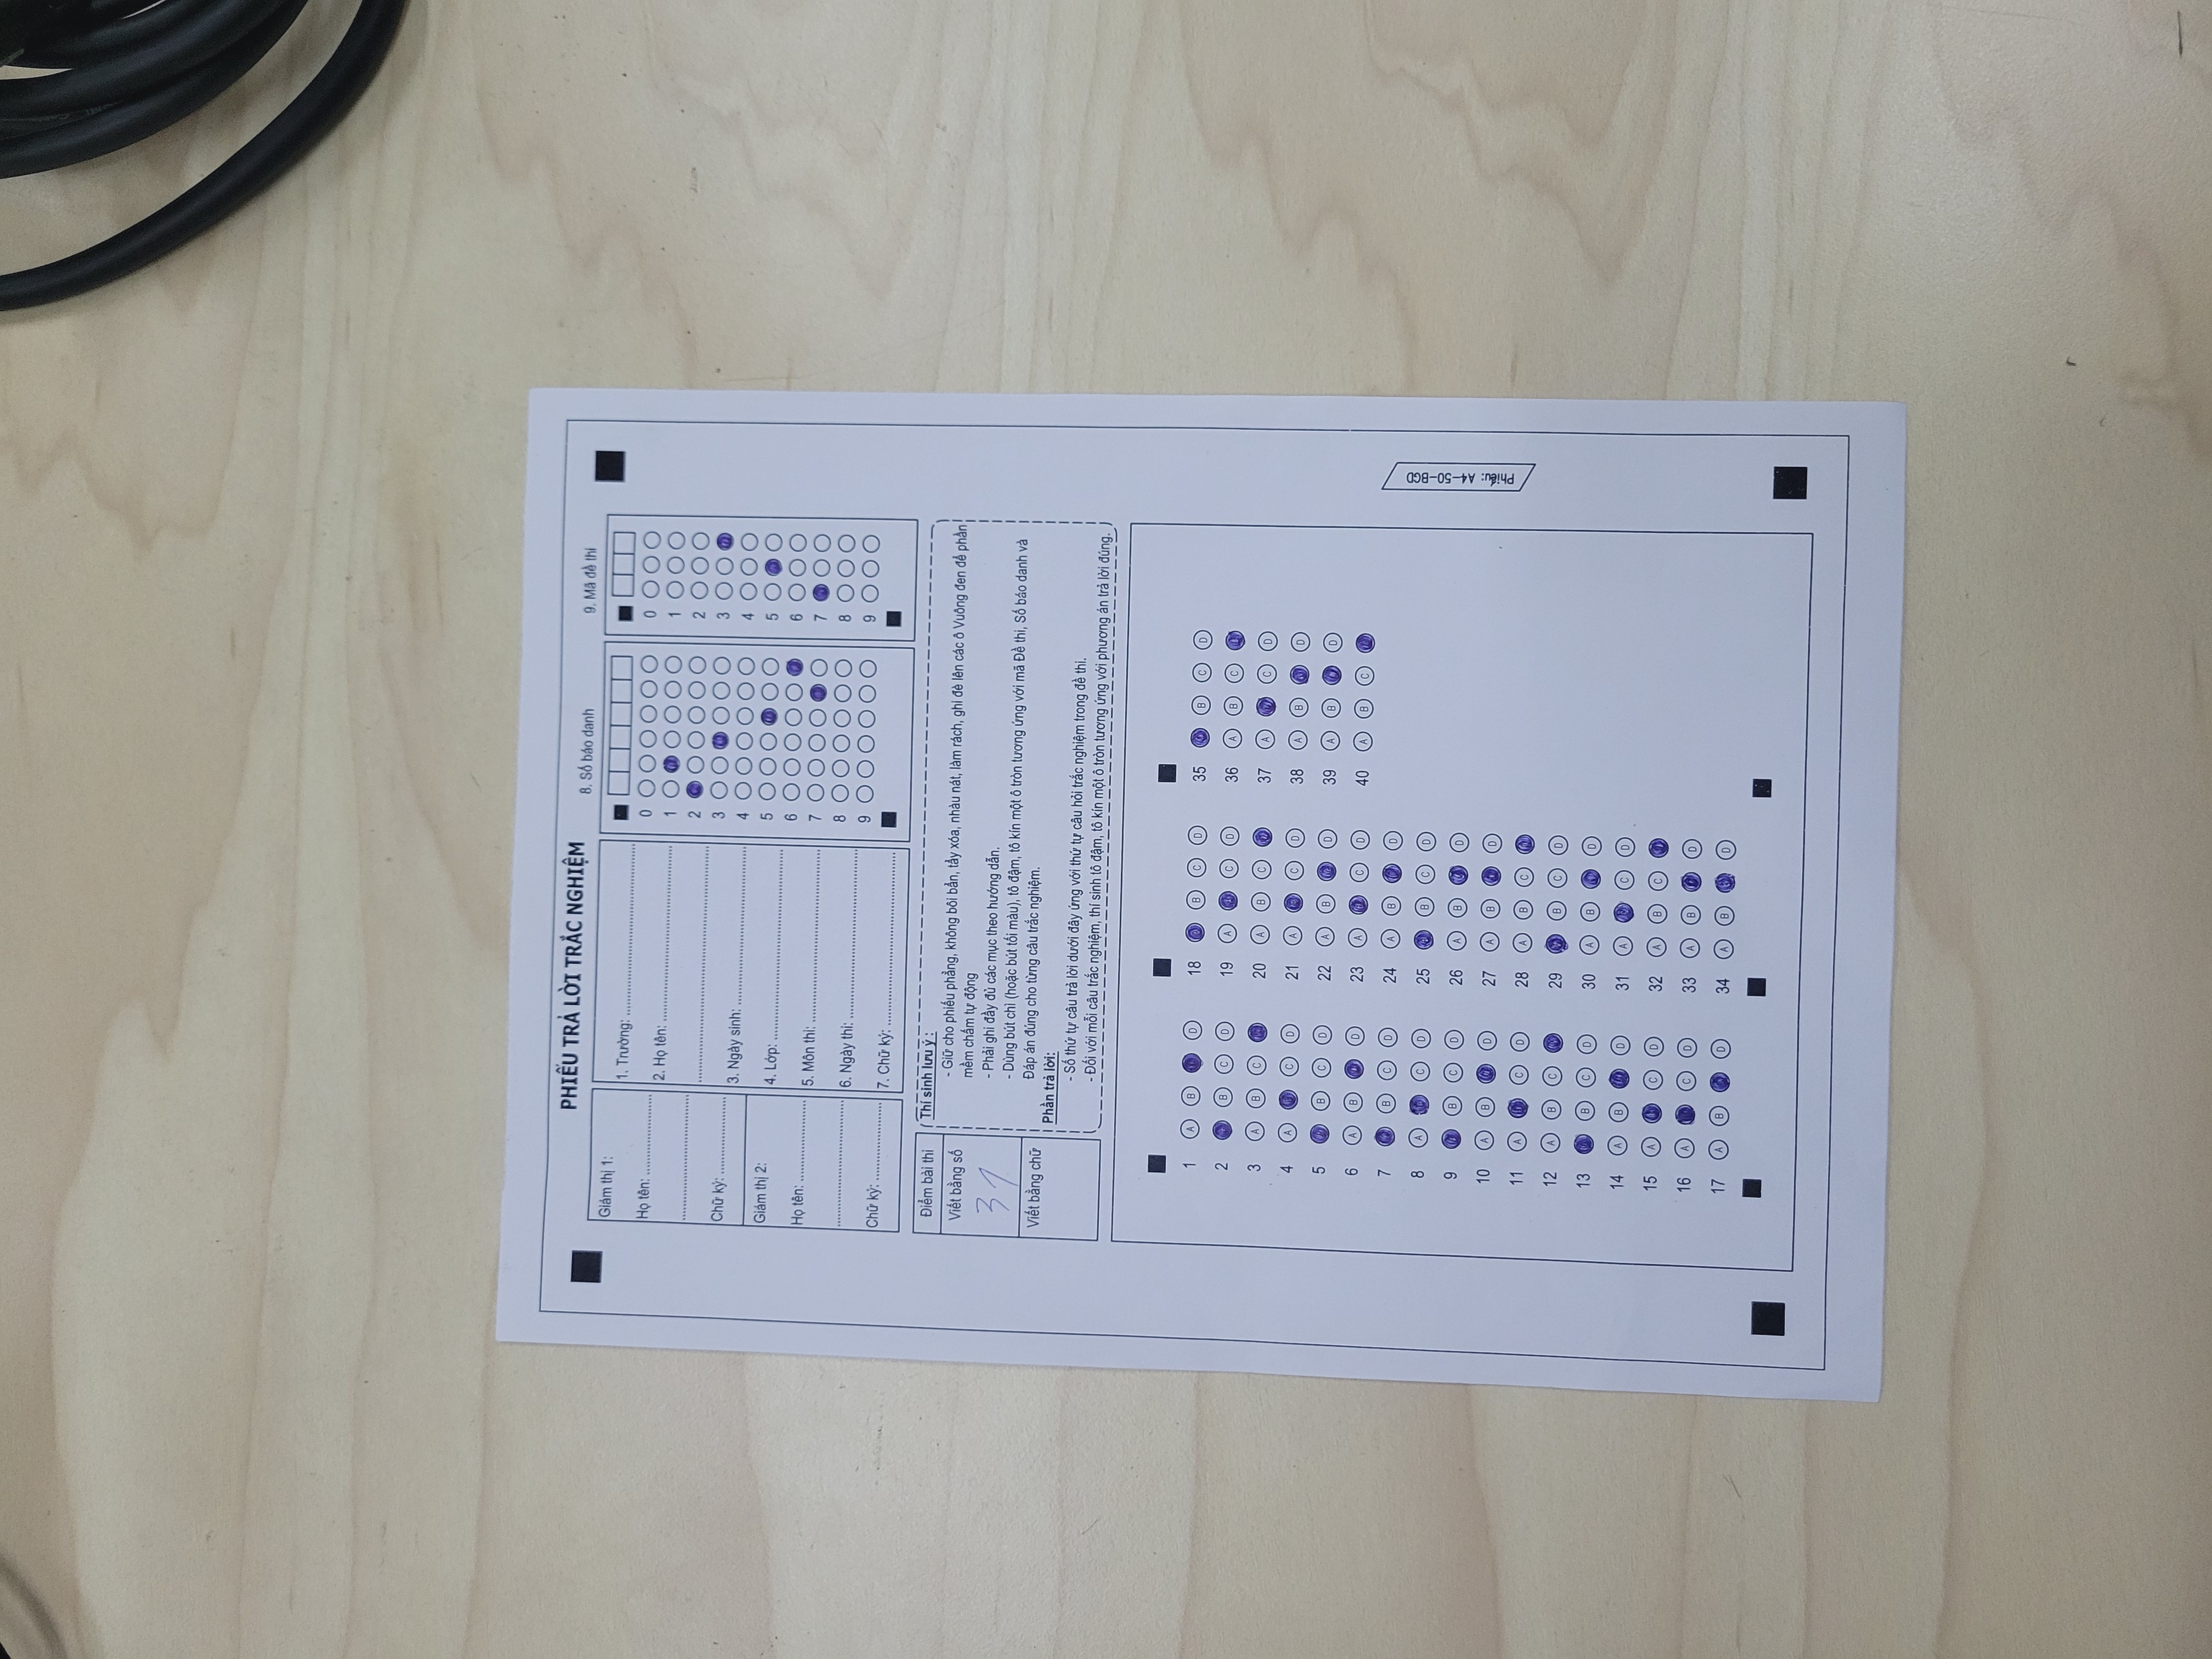 PHIẾU TRẢ LỜI TRẮC NGHIỆM
Giám thị 1:
Họ tên:
Chữ ký:
Giám thị 2:
Họ tên:
Chữ ký:
1. Trường:
2. Họ tên:
3. Ngày sinh:
4. Lớp:
5. Môn thi:
6. Ngày thi:
7. Chữ ký:
8. Số báo danh
0
1
2
3
4
5
6
7
8
9
9. Mã đề thi
0
1
2
3
4
5
6
7
8
9
Điểm bài thi
Viết bằng số
31
Viết bằng chữ
Thí sinh lưu ý :
- Giữ cho phiếu phẳng, không bôi bẩn, tẩy xóa, nhàu nát, làm rách, ghi đè lên các ô Vuông đen để phần
mềm chấm tự động
- Phải ghi đầy đủ các mục theo hướng dẫn.
- Dùng bút chì (hoặc bút tối màu), tô đậm, tô kín một ô tròn tương ứng với mã Đề thi, Số báo danh và
Đáp án đúng cho từng câu trắc nghiệm.
Phần trả lời:
- Số thứ tự câu trả lời dưới đây ứng với thứ tự câu hỏi trắc nghiệm trong đề thi.
- Đối với mỗi câu trắc nghiệm, thí sinh tô đậm, tô kín một ô tròn tương ứng với phương án trả lời đúng.
1 A B D
2 B C D
3 A B C
4 A C D
5 B C D
6 A B D
7 B C D
8 A C D
9 B C D
10 A B D
11 A C D
12 A B C
13 B C D
14 A B D
15 A C D
16 A C D
17 A B D
18 B C D
19 A C D
20 A B C
21 A C D
22 A B D
23 A C D
24 A B D
25 B C D
26 A B D
27 A B D
28 A B C
29 B C D
30 A B D
31 A C D
32 A B C
33 A B D
34 A B D
35 B C D
36 A B C
37 A C D
38 A B D
39 A B D
40 A B C
Phiếu: A4-50-BGD